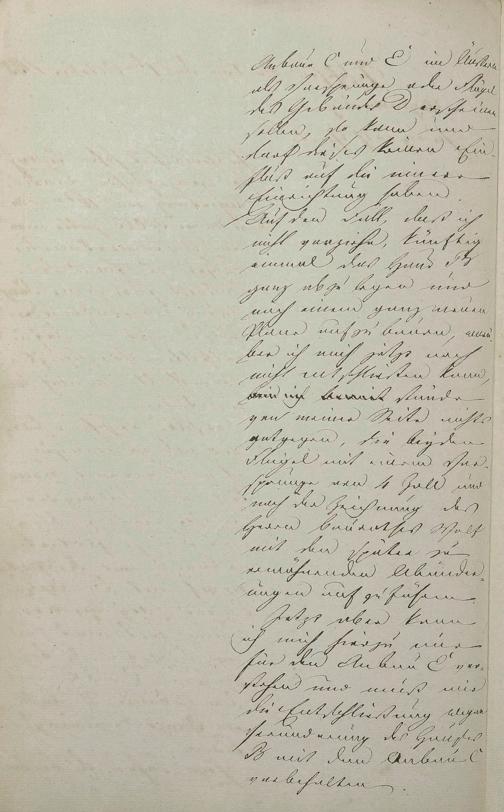 Anbaue C und E im Äussern
als Vorsprünge oder Flügel
des Gebäudes D erscheinen
sollen, so kann und
darf dieses keinen Ein
fluß auf die innere
Einrichtung haben.
Auf den Fall, daß ich
nicht vorziehe, künftig
einmal das Haus B
ganz abzulegen und
nach einem ganz neuen
Plane aufzubauen, wor
ber ich mich jetzt noch
nicht entschließen kann,
stünde
von meiner Seite nichts
entgegen, die beyden
Flügel mit einem Vor-
sprunge von 4 Zoll und
nach der Zeichnung des
Herrn Baurathes Wolf
mit den später zu
erwähnenden Abänder-
ungen aufzuführen.
Jetzt aber kann
ich mich hierzu nur
für den Anbau E ver-
stehen und muß mir
die Entschließung wegen
Veränderung des Hauses
B mit dem Anbau C
vorbehalten.